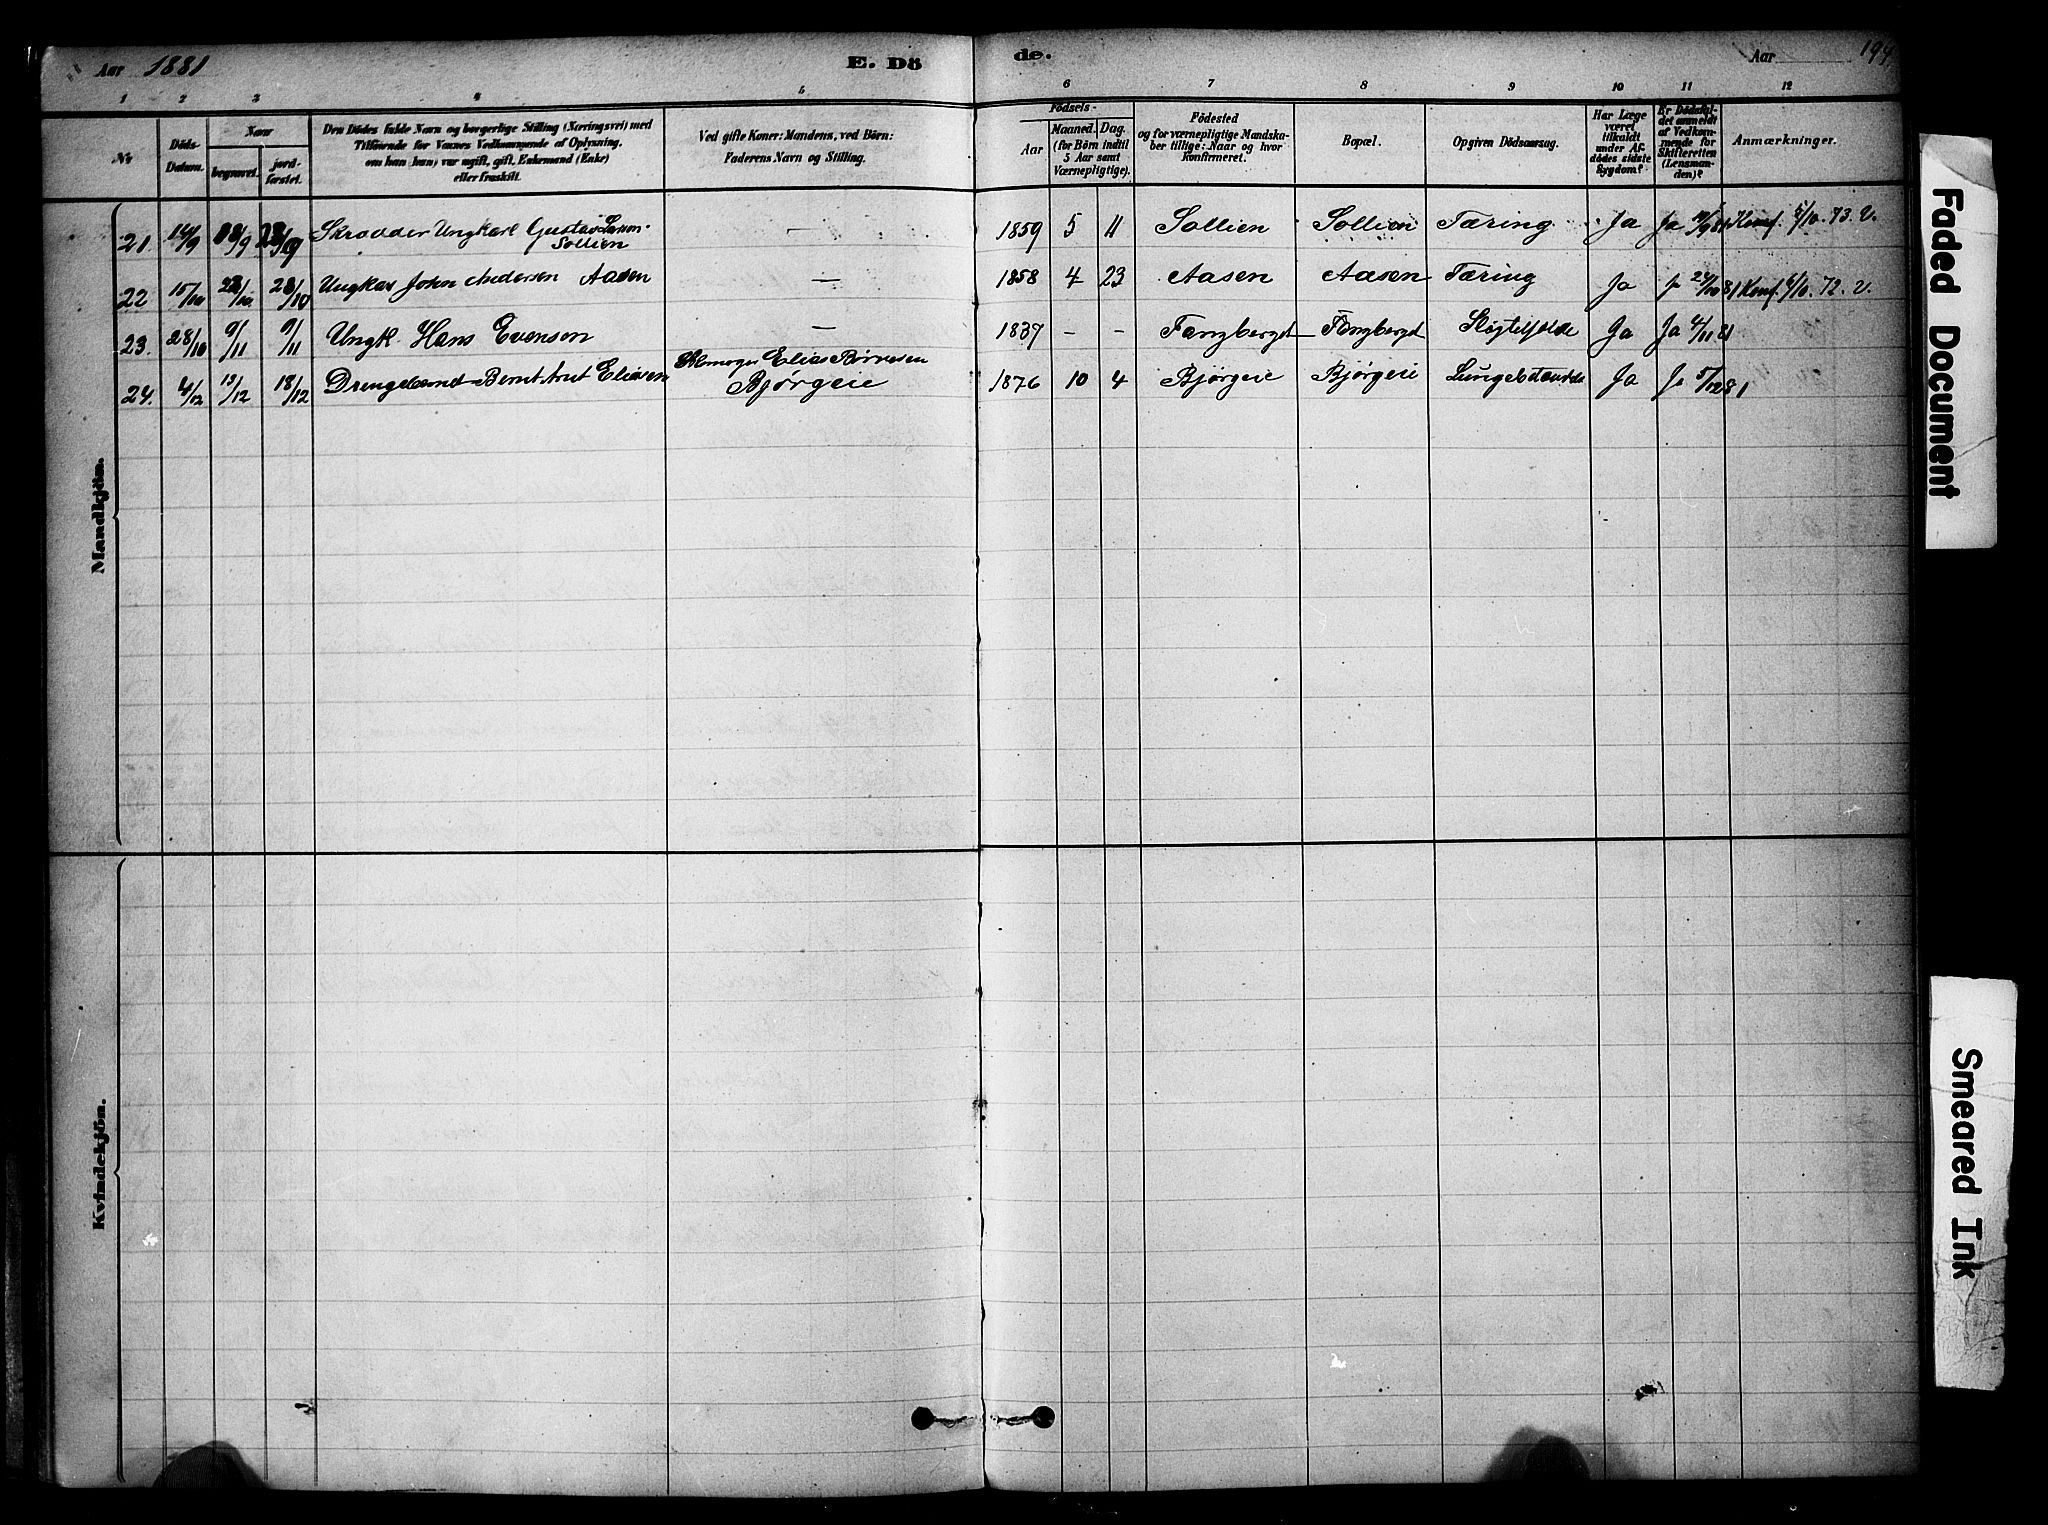 Aar 1881
E. Dö
de.
Aar
194
1 2 3 4 5 6 7 8 9 10 11 12
No
Döds-Datum.
Naar
begravet.
jord-fæstet.
Den Dödes fulde Navn og borgerlige Stilling (Næringsvei) med
Tilföiende for Voxnes Vedkommende af Oplysning,
om han (hun) var ugift, gift, Enkemand (Enke)
eller fraskilt.
Ved gifte Koner: Mandens, ved Börn:
Faderens Navn og Stilling.
Födsels-
Aar
Maaned. Dag.
(for Börn indtil
5 Aar samt
Værnepligtige).
Födested
og for værnepligtige Mandska-
ber tillige: Naar og hvor
konfirmeret.
Bopæl.
Opgiven Dödsaarsag.
Har Læge
været
tilkaldt
under Af-
dödes sidste
Sygdom?
Er Dödsfal-
det anmeldt
af Vedkom-
mende for
Skifteretten
(Lensman-
den)?
Anmærkninger.
Mandkjön.
21. 14/9 Skrædder Ungkarl Gustav
Sollien — 1859 5 11 Sollien Sollien Tæring Ja Ja Konf. 5/10. 73. V.
22 15/10 23/10 Ungkar John Andersen Aasen — 1858 4 23 Aasen Aasen Tæring Ja J Konf. 6/10. 72. V.
23. 28/10 9/11 9/11 Ungk. Hans Evenson — 1837 - - Fangberget Fangberget Ja Ja 4/11 81
24. 4/12 13/12 18/12 Drengebarnet Bernt Eliasen Elias
Bjørgeie 1876 10 4 Bjørgeie Bjørgeie Ja Ja 5/12 81
Kvindekjön.
Faded Document
Smeared Ink